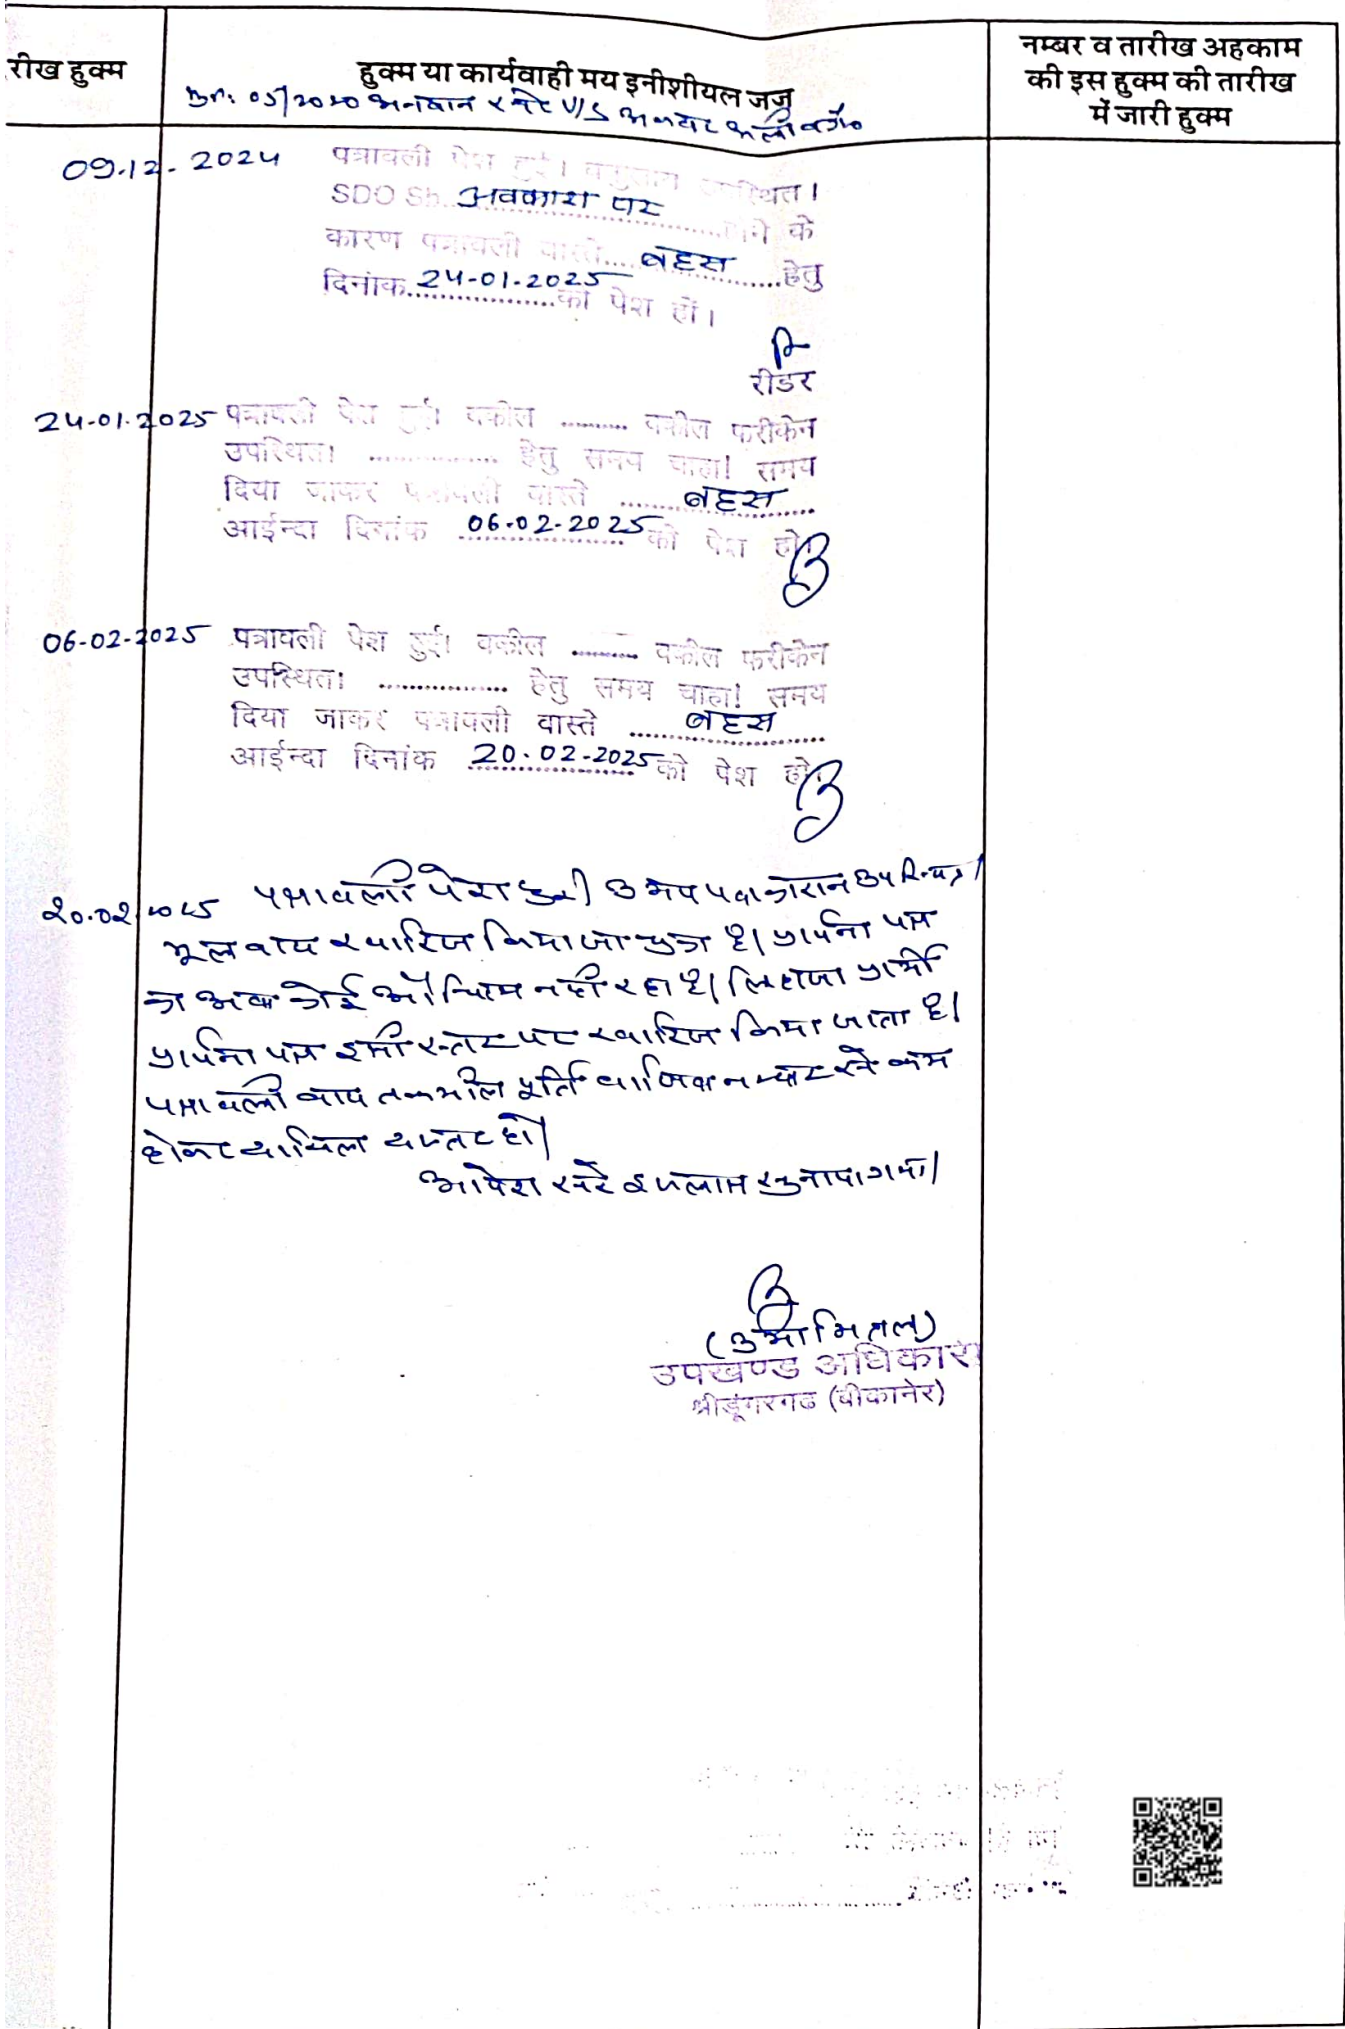 रीख हुक्म
हुक्म या कार्यवाही मय इनीशीयल जज
नम्बर व तारीख अहकाम
की इस हुक्म की तारीख
में जारी हुक्म
05/2020 V/S अली
09.12.2024 पत्रावली पेश हुई। उपस्थित।
SDO Sh. अवकाश पर
होने के
कारण पत्रावली वास्ते.....बहस.......हेतु
दिनांक 24-01-2025 को पेश हों।
रीडर
24-01-2025 पत्रावली पेश हुई। वकील .......... वकील फरीकेन
उपस्थित। .................. हेतु समय चाहा! समय
दिया जाकर पत्रावली वास्ते ......बहस......
आईन्दा दिनांक 06-02-2025 को पेश हो
06-02-2025 पत्रावली पेश हुई। वकील .......... वकील फरीकेन
उपस्थित। .................. हेतु समय चाहा! समय
दिया जाकर पत्रावली वास्ते ......बहस......
आईन्दा दिनांक 20-02-2025 को पेश हो
20.02.2025 पत्रावली पेश हुई। उभय पक्षकारान उपस्थित।
मूल वाद खारिज किया जा चुका है। प्रार्थना पत्र
का अब कोई औचित्य नहीं रहा है। लिहाजा प्रार्थी
प्रार्थना पत्र इसी स्तर पर खारिज किया जाता है।
पत्रावली बाद तकमील पूर्ति नम्बर से कम
होकर दाखिल दफ्तर हो।
आदेश सरे इजलास सुनाया गया।
(उमा मित्तल)
उपखण्ड अधिकारी
श्रीडूंगरगढ (बीकानेर)